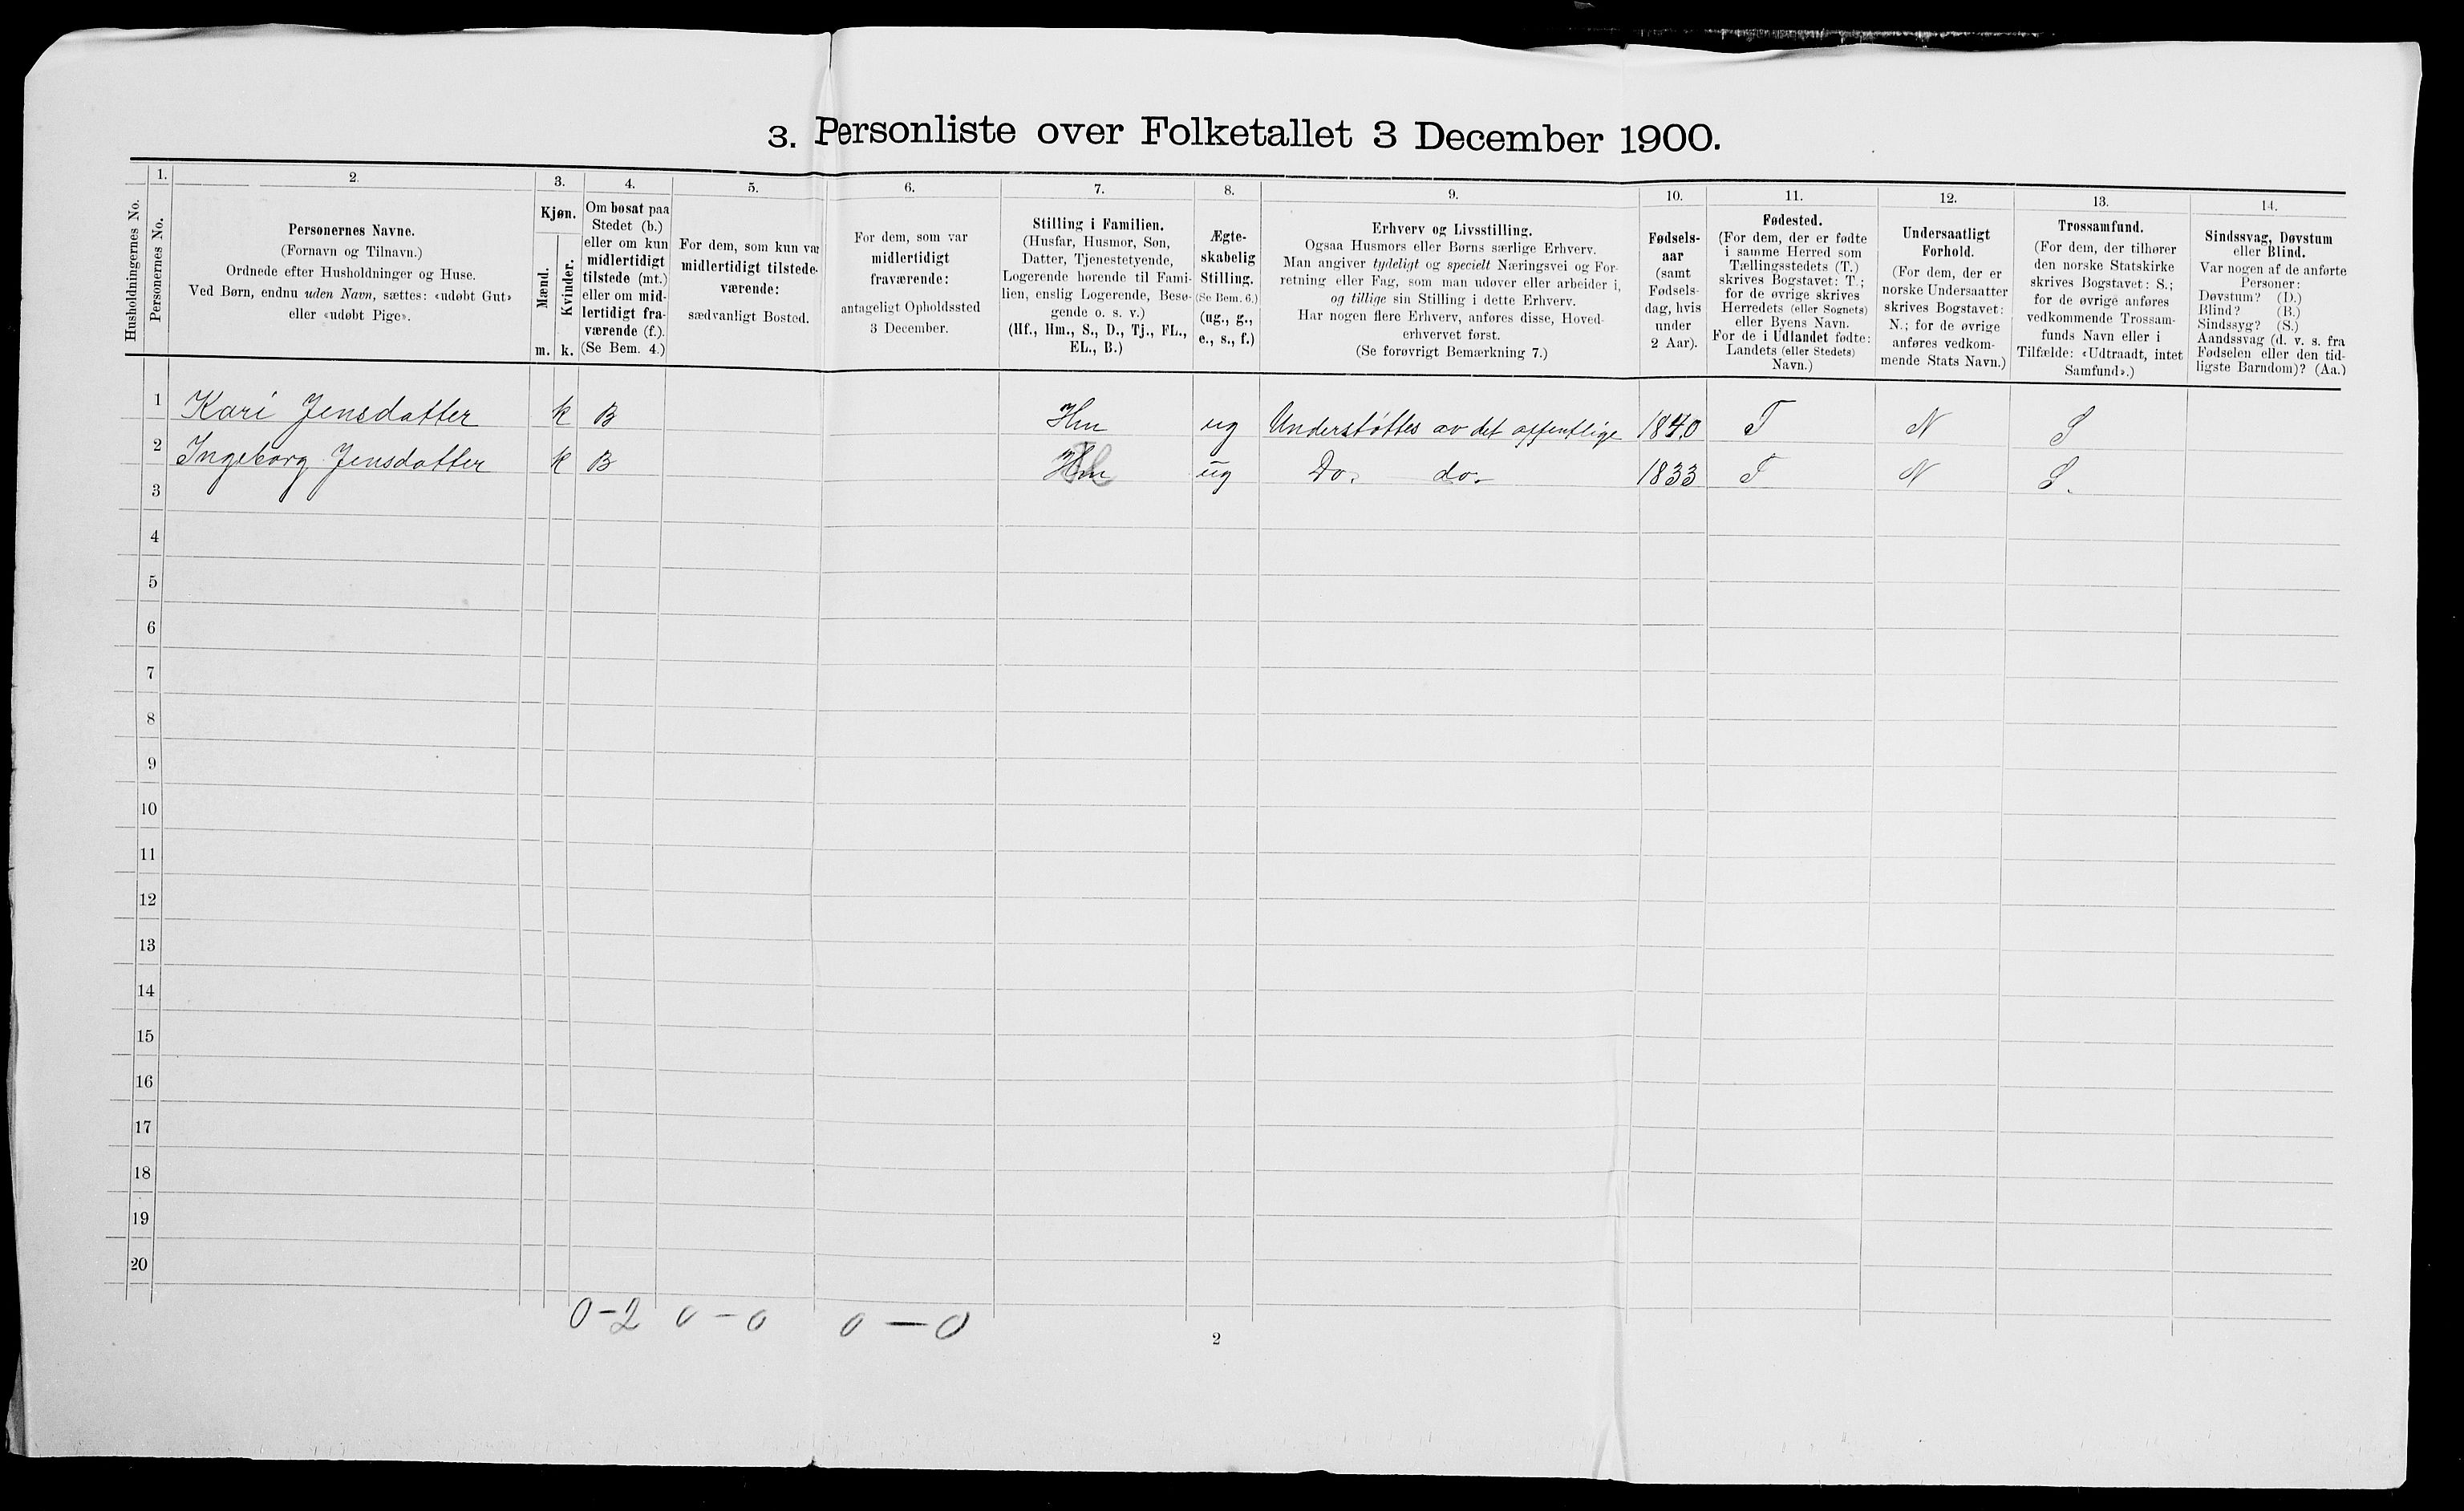 3. Personliste over Folketallet 3 December 1900.
Husholdningernes No.
1.
Personernes No.
2.
Personernes Navne.
(Fornavn og Tilnavn.)
Ordnede efter Husholdninger og Huse.
Ved Børn, endnu uden Navn, sættes: «udøbt Gut»
eller «udøbt Pige».
3.
Kjøn.
Mænd.
Kvinder.
m.
k.
4.
Om bosat paa
Stedet (b.)
eller om kun
midlertidigt
tilstede (mt.)
eller om mid-
lertidigt fra-
værende (f.).
(Se Bem. 4.)
5.
For dem, som kun var
midlertidigt tilstede-
værende:
sædvanligt Bosted.
6.
For dem, som var
midlertidigt
fraværende:
antageligt Opholdssted
3 December.
7.
Stilling i Familien.
(Husfar, Husmor, Søn,
Datter, Tjenestetyende,
Logerende hørende til Fami-
lien, enslig Logerende, Besø-
gende o. s. v.)
(Hf., Hm., S., D., Tj., FL.,
EL., B.)
8.
Ægte-
skabelig
Stilling.
(Se Bem. 6.)
(ug., g.,
e., s., f.)
9.
Erhverv og Livsstilling.
Ogsaa Husmors eller Børns særlige Erhverv.
Man angiver tydeligt og specielt Næringsvei og For-
retning eller Fag, som man udøver eller arbeider i,
og tillige sin Stilling i dette Erhverv.
Har nogen flere Erhverv, anføres disse, Hoved-
erhvervet først.
(Se forøvrigt Bemærkning 7.)
10.
Fødsels-
aar
(samt
Fødsels-
dag, hvis
under
2 Aar).
11.
Fødested.
(For dem, der er fødte
i samme Herred som
Tællingsstedets (T.)
skrives Bogstavet: T.;
for de øvrige skrives
Herredets (eller Sognets)
eller Byens Navn.
For de i Udlandet fødte:
Landets (eller Stedets)
Navn.)
12.
Undersaatligt
Forhold.
(For dem, der er
norske Undersaatter
skrives Bogstavet:
N.; for de øvrige
anføres vedkom-
mende Stats Navn.)
13.
Trossamfund.
(For dem, der tilhører
den norske Statskirke
skrives Bogstavet: S.;
for de øvrige anføres
vedkommende Trossam-
funds Navn eller i
Tilfælde: «Udtraadt, intet
Samfund».)
14.
Sindssvag, Døvstum
eller Blind.
Var nogen af de anførte
Personer:
Døvstum? (D.)
Blind? (B.)
Sindssyg? (S.)
Aandssvag (d. v. s. fra
Fødselen eller den tid-
ligste Barndom)? (Aa.)
1 Kari Jensdatter k B Hm ug Understøttes av det offentlige 1840 T N S
2 Ingeborg Jensdatter k B Hm ug Do. do. 1833 T N S.
3
4
5
6
7
8
9
10
11
12
13
14
15
16
17
18
19
20
0-2 0-0 0-0
2